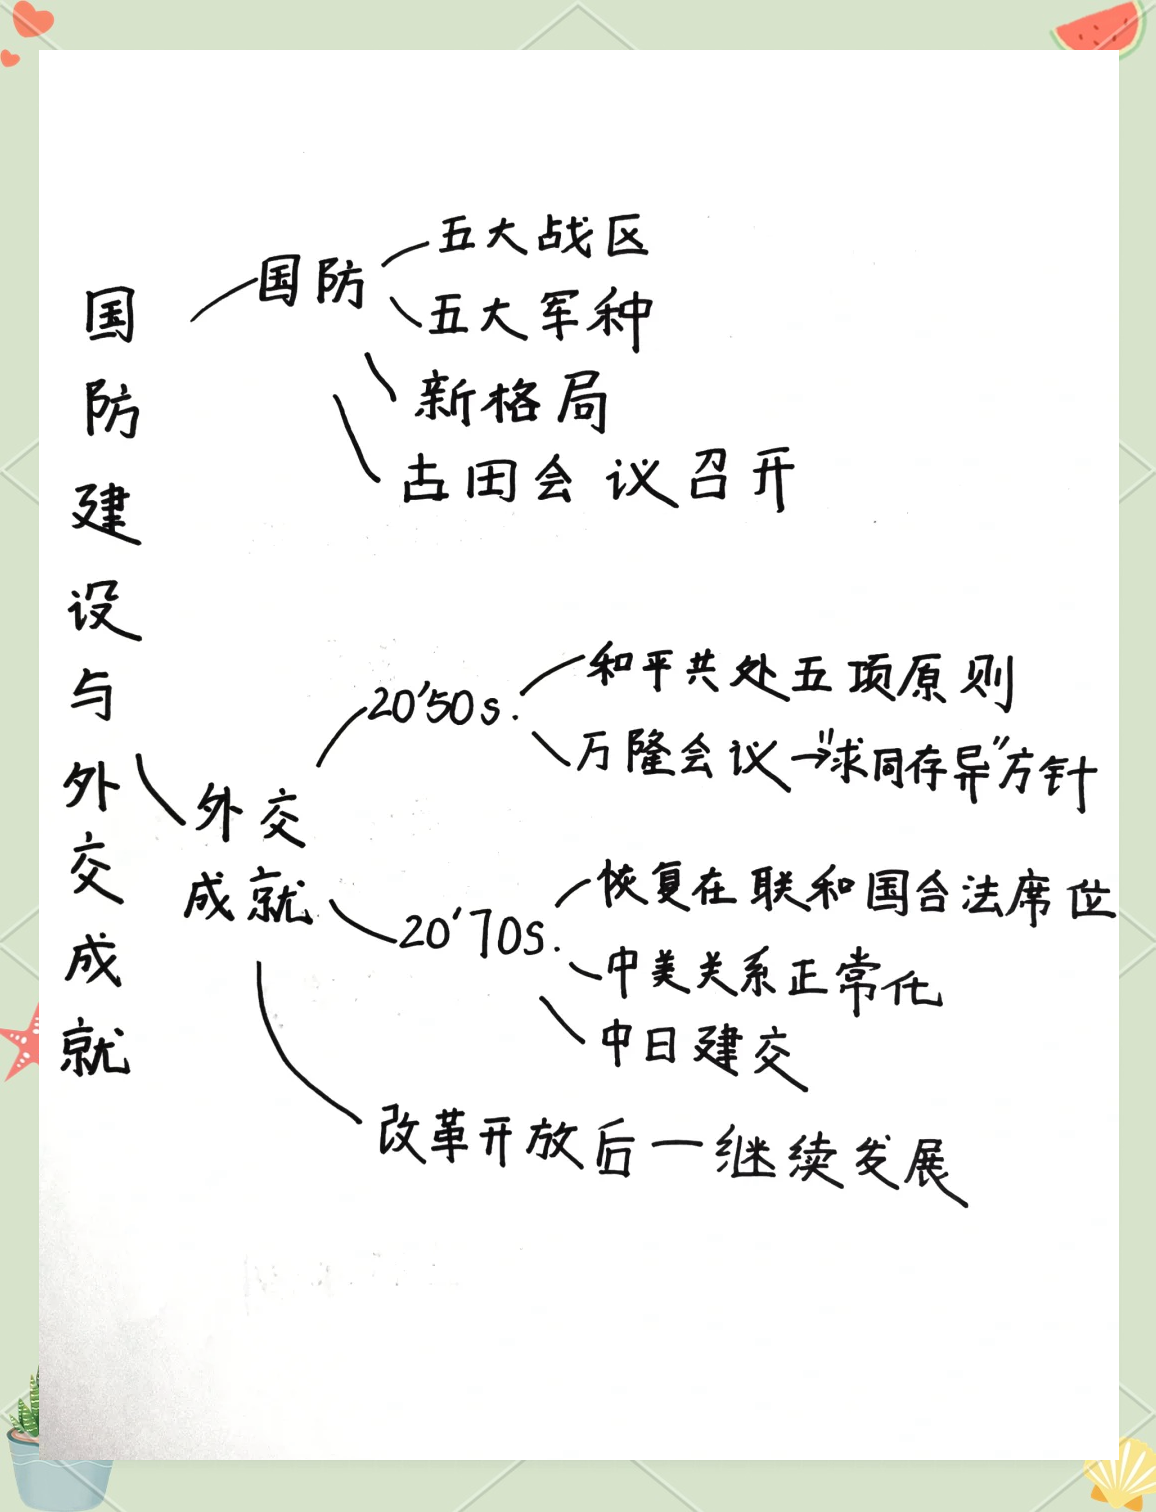 国防建设与外交成就
国防
五大战区
五大军种
新格局
古田会议召开
外交
成就
20'50s.
和平共处五项原则
万隆会议→"求同存异"方针
20'70s.
恢复在联和国合法席位
中美关系正常化
中日建交
改革开放后一继续发展